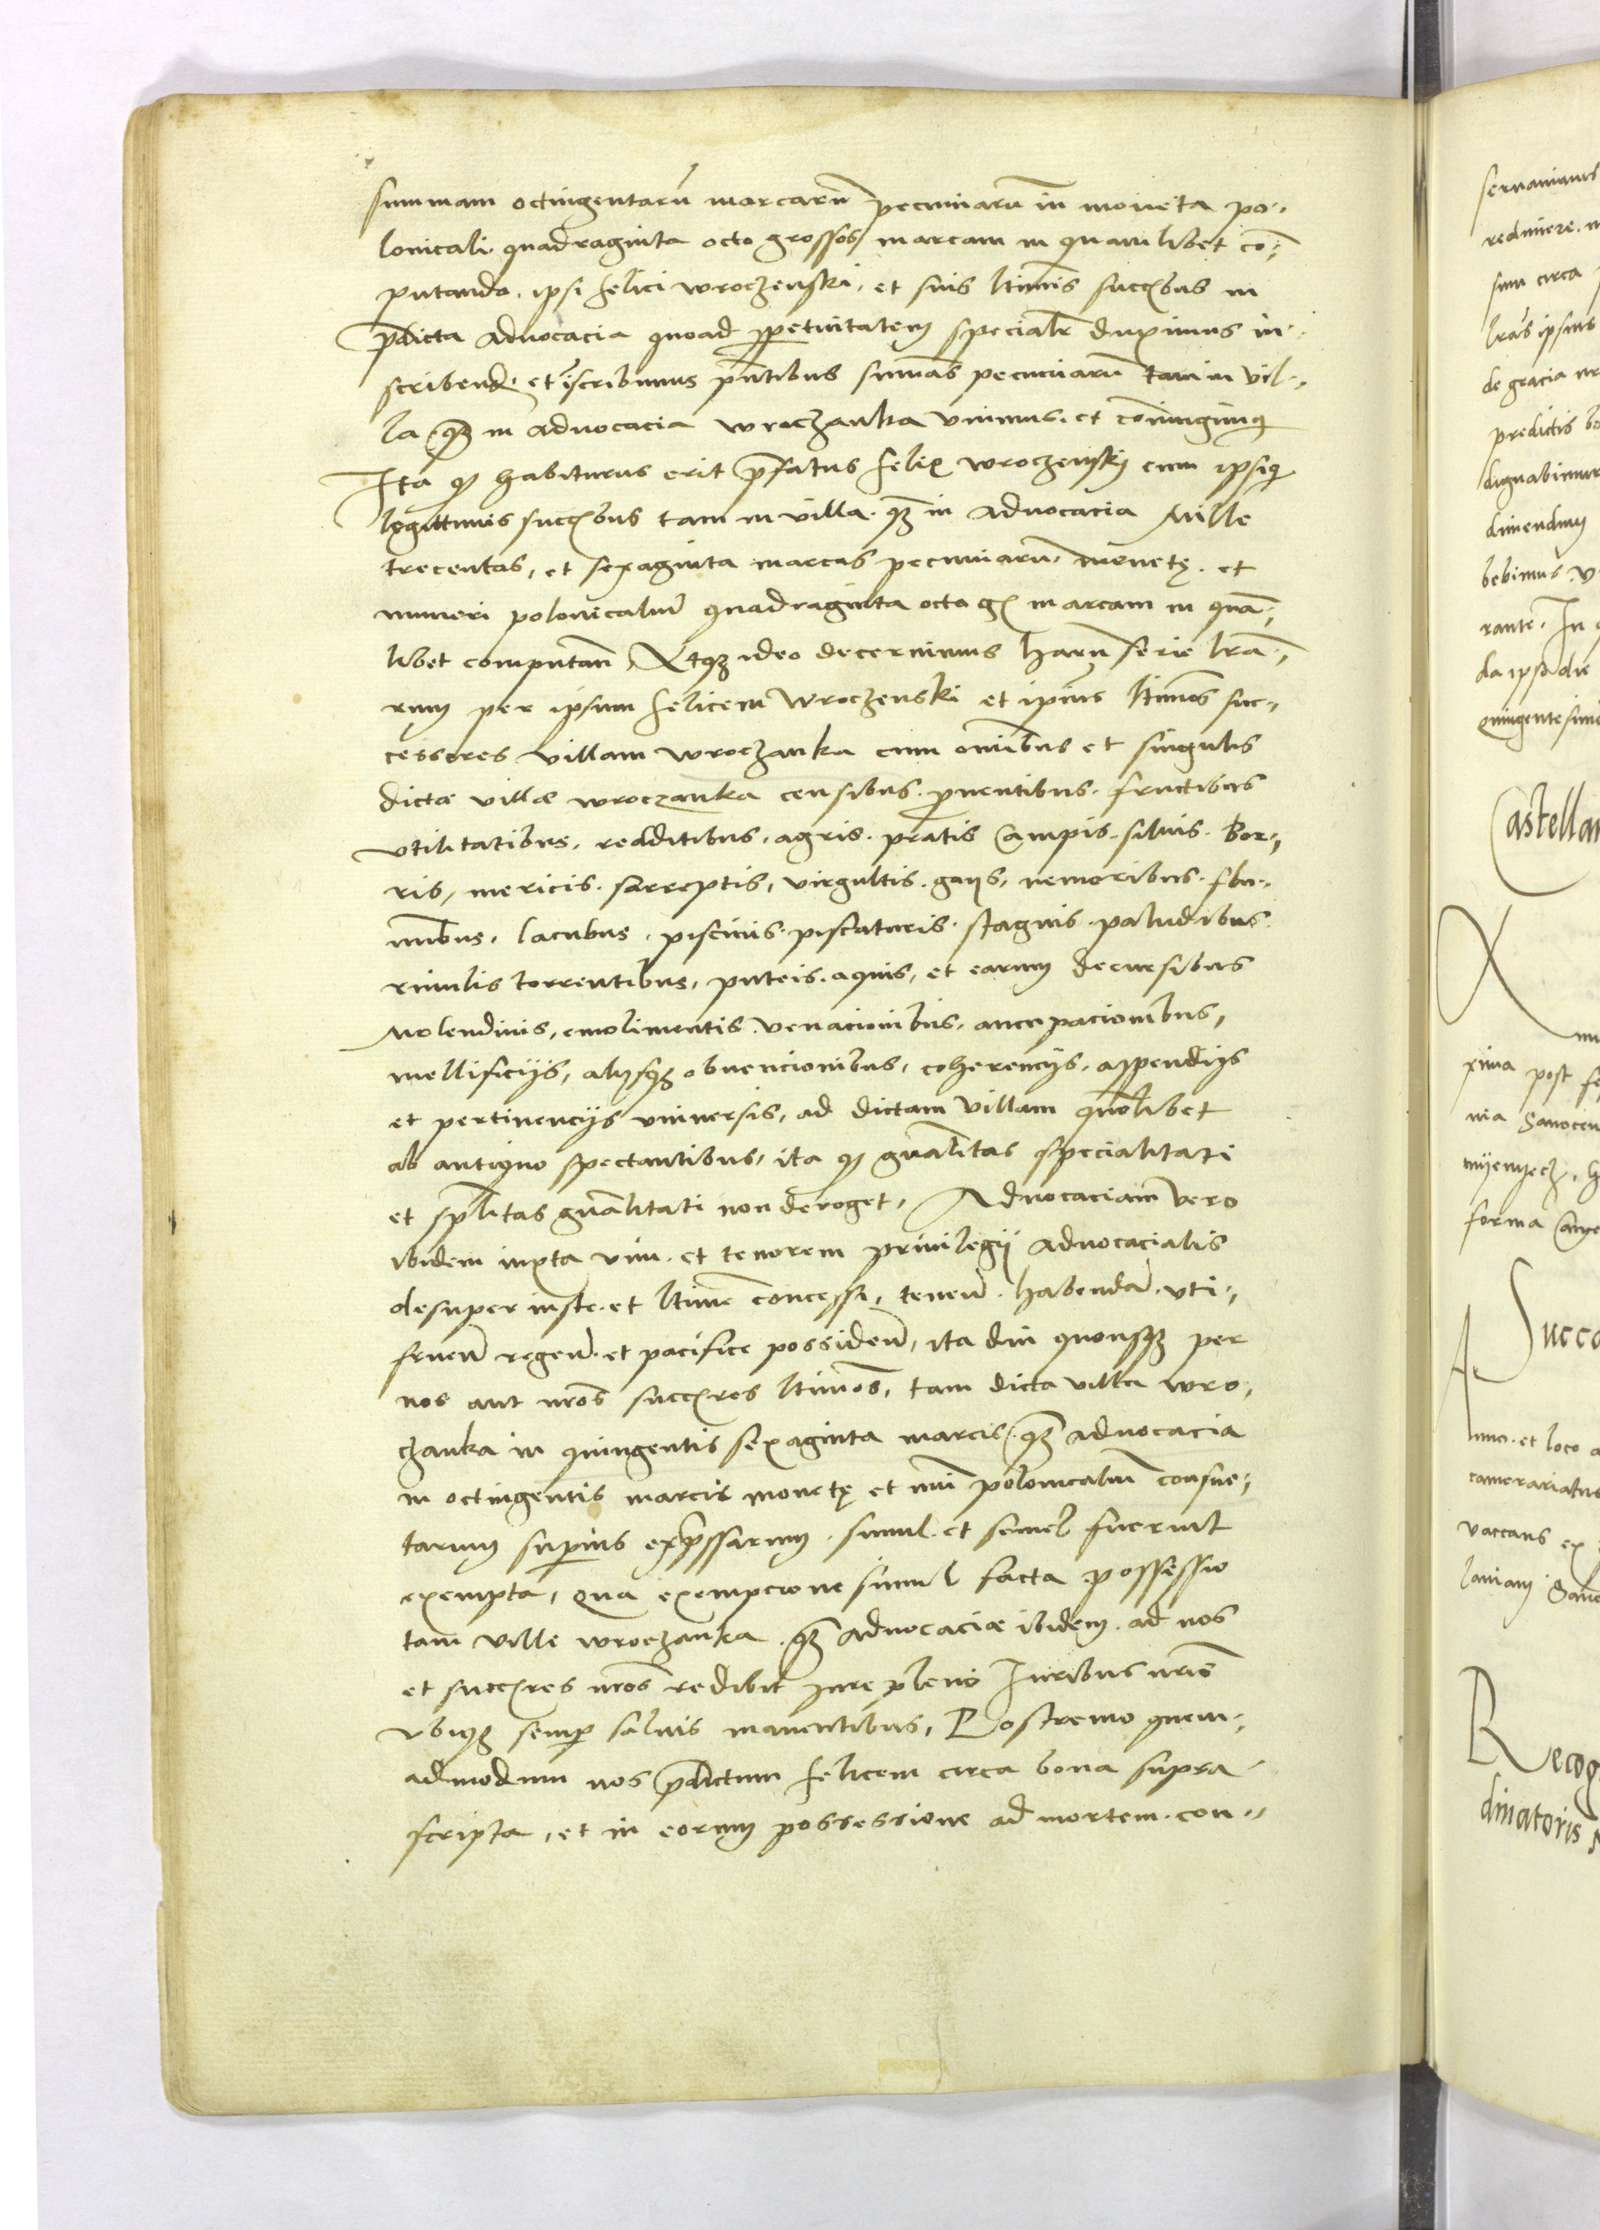 summam octingentarū marcarū pecuniarū in moneta po-
lonicali quadraginta octo grossos marcam in quamlibet cō-
putando. ipsi felici wroczenski. et suis ltimis succ̄bus in
p̄dicta advocacia quoad ppetuitatem specialr̄ duximus in-
scribend. et īscribimus pn̄tibus sum̄as pecuniarū tam in vil-
la q̄ꝫ in advocacia wroczanka vnimus. et coniungimꝰ
Ita qꝫ habiturus erit p̄fatus felix wroczensky cum ipsiꝰ
legittimis succ̄bus tam in villa. q̄ꝫ in advocacia Mille
trecentas, et sexaginta marcas pecuniarū monetę. et
numeri polonicaliū quadraginta octo gr̄ marcam in quā-
libet computan̄. Atqꝫ ideo decernimus harū serie lrā-
rum per ipsum felicem Wroczenski et ipīus ltimos suc-
cessores villam wroczanka cum omībus et singulis
dictæ villæ wroczanka censibus. pventibus. fructibus
vtilitatibus, redditibus, agris. pratis campis. siluis. bor-
ris, mericis. sarreptis, virgultis. gays, nemoribus. flu-
mībus, lacubus, piscinis. piscaturis. stagnis. paludibus.
riuulis torrentibus, puteis. aquis, et earum decursibus
Molendinis, emolimentis. venacionibus. aucupacionibus,
mellificijs, alijsqꝫ obuencionibus, coherencijs, appendijs
et pertinencijs vniuersis, ad dictam villam quōlibet
ab antiquo spectantibus, ita qꝫ gn̄alitas specialitati
et spl̄itas gn̄alitati non deroget, Advocaciam vero
ibidem iuxta vim. et tenorem priuilegij advocacialis
desuper iuste. et ltime concessi, tenen̄. habendā. vti-
fruen̄ regen̄. et pacifice possiden̄, ita diu quousqꝫ per
nos aut nr̄os succ̄res ltimos, tam dicta villa wro-
czanka in quingentis sexaginta marcis. q̄ꝫ advocacia
in octingentis marcis monetę et nūi polonicaliū consue-
tarum supius exp̄ssarum. simul. et semel fuerint
exempta, Qua exempcione simul facta possessio
tam ville wroczanka. q̄ꝫ advocaciæ ibidem. ad nos
et succ̄res nr̄os redibit Jure pleno Juribus nr̄is
vbiqꝫ semp saluis manentibus, Postremo quem-
admodum nos p̄dictum felicem circa bona supra
scripta, et in eorum possessione ad mortem. con-
seruauimus
redimere.
sum circa
lr̄as ipsius
de gracia
predictis
dignabimur
dimendum
bebimus.
rante. In
da ipsa die
quingentesimo
Castellan
post
nia Sanocen
forma
Succ
et loco
camerariatus
vaccans ex
Recog
dinatoris